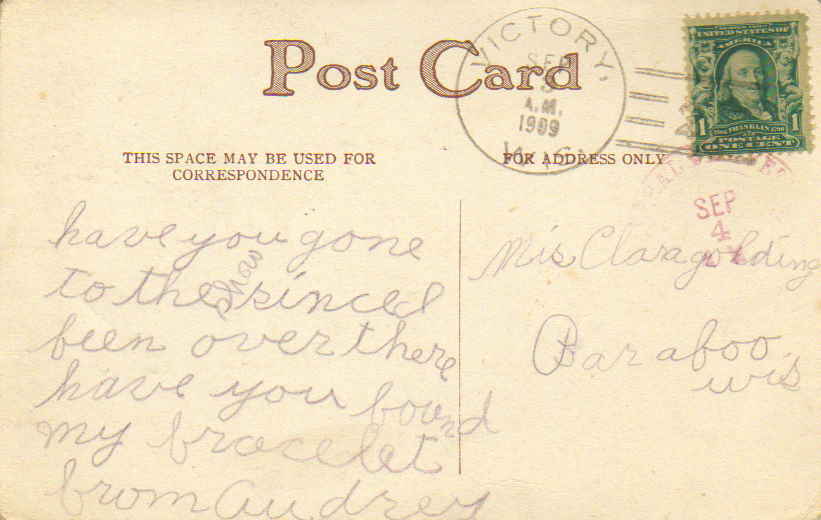 Post Card
VICTORY,
SEP
3
A.M.
1909
WIS.
UNITED STATES OF
AMERICA
1 FRANKLIN 1
POSTAGE
ONE CENT
THIS SPACE MAY BE USED FOR
CORRESPONDENCE
FOR ADDRESS ONLY
SEP
4
have you gone
to the show since I
been over there
have you bound
my bracelet
from Audrey
Mis Clara golding
Baraboo
wis